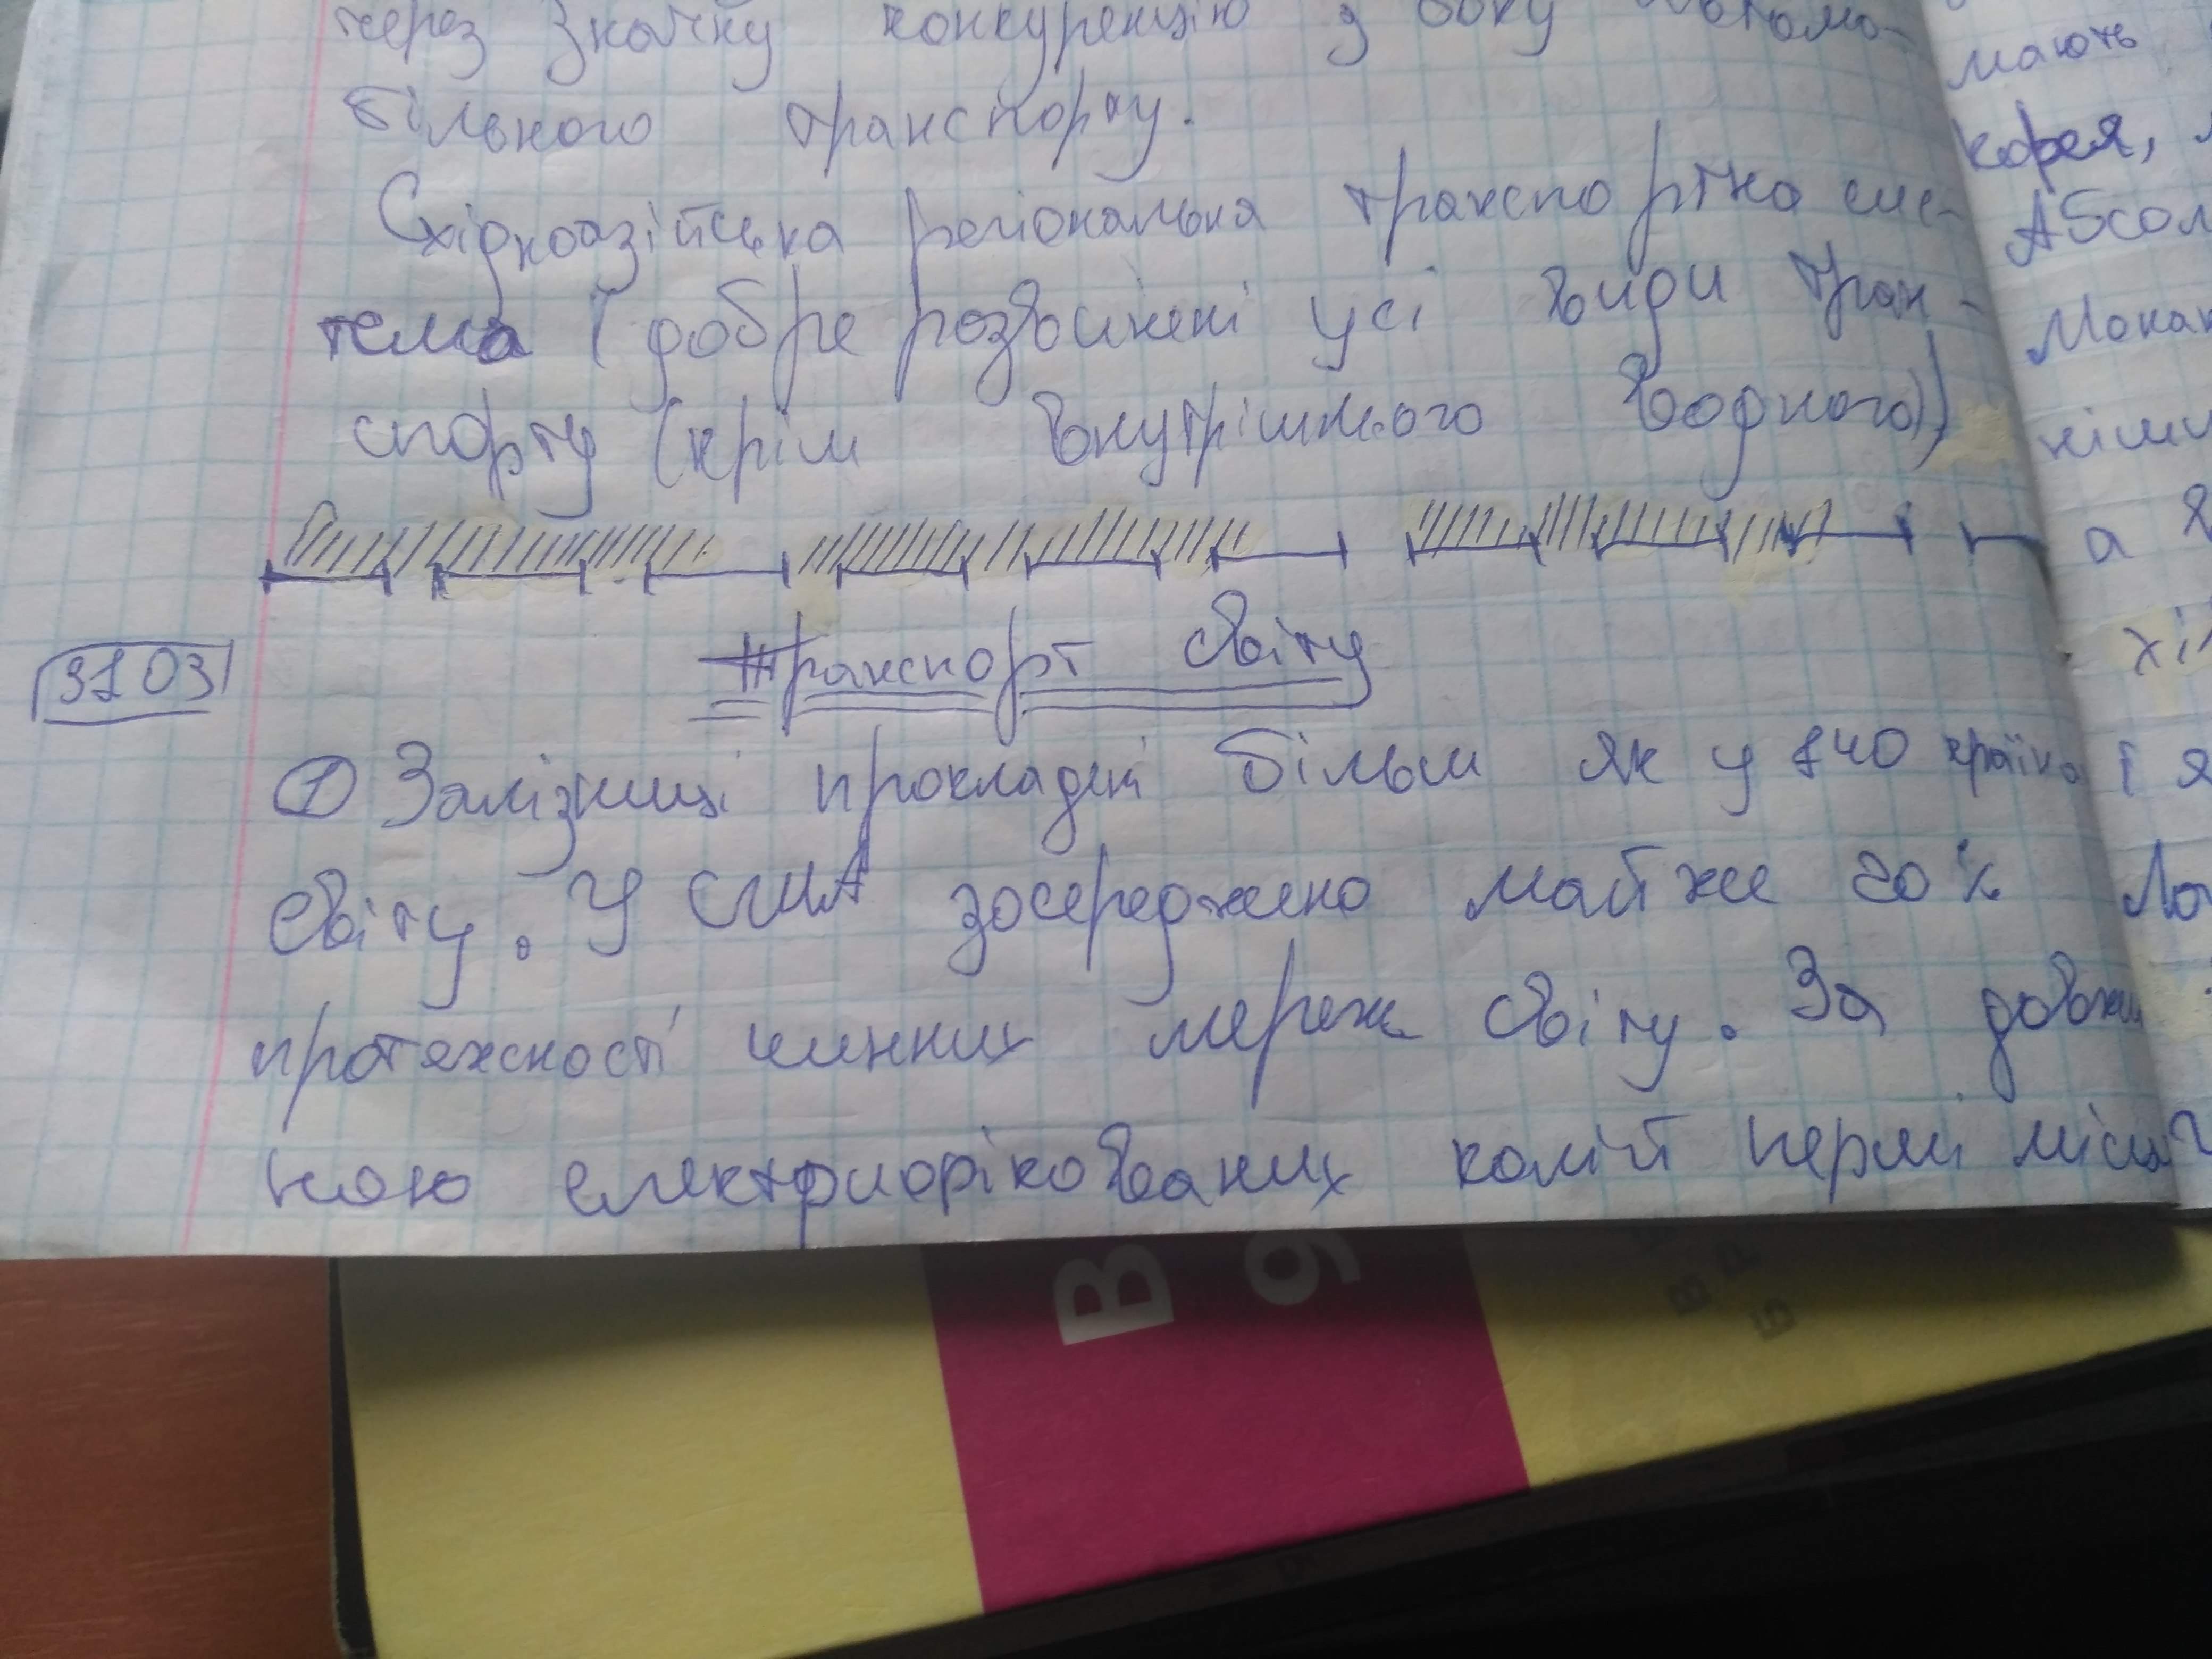 через значну конкуренцію з боку автомо-
більного транспорту.
Східноазійська регіональна транспортна сис-
тема (добре розвинені усі види тран-
спорту (крім внутрішнього водного))
31 03
Транспорт світу
① Залізниці прокладені більш як у 140 країна
світу. У США зосереджено майже 20%
протяжності чинних мереж світу. За довжи
ною електрифікованих колій перші місця
мають
Корея,
Абсол
Монак
ніши
а в
хіл
і я
Ло
В
9
В Р
Б